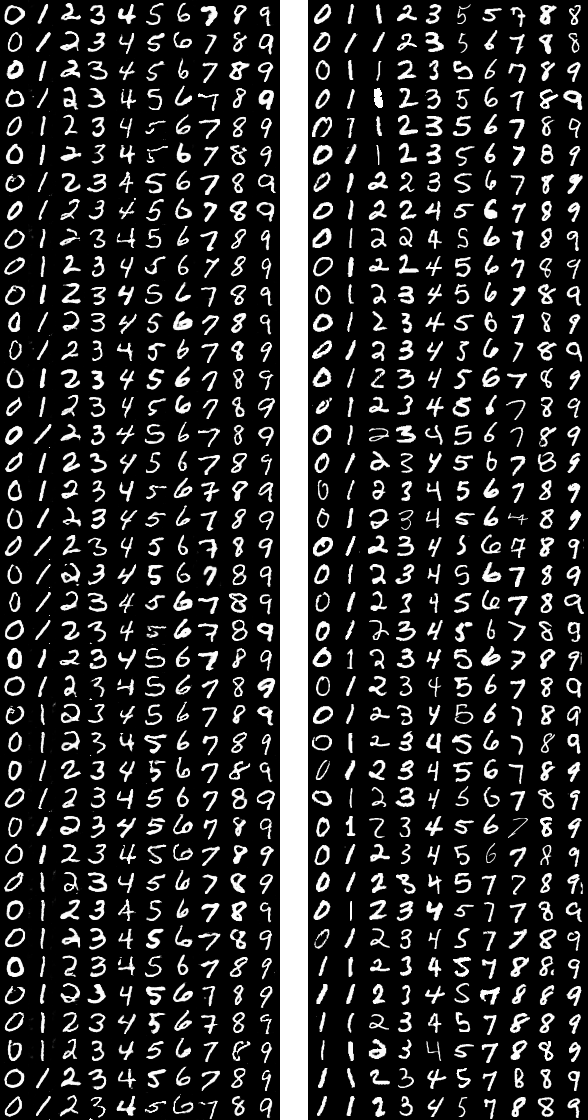 0 1 2 3 4 5 6 7 8 9
0 1 2 3 4 5 6 7 8 9
0 1 2 3 4 5 6 7 8 9
0 1 2 3 4 5 6 7 8 9
0 1 2 3 4 5 6 7 8 9
0 1 2 3 4 5 6 7 8 9
0 1 2 3 4 5 6 7 8 9
0 1 2 3 4 5 6 7 8 9
0 1 2 3 4 5 6 7 8 9
0 1 2 3 4 5 6 7 8 9
0 1 2 3 4 5 6 7 8 9
0 1 2 3 4 5 6 7 8 9
0 1 2 3 4 5 6 7 8 9
0 1 2 3 4 5 6 7 8 9
0 1 2 3 4 5 6 7 8 9
0 1 2 3 4 5 6 7 8 9
0 1 2 3 4 5 6 7 8 9
0 1 2 3 4 5 6 7 8 9
0 1 2 3 4 5 6 7 8 9
0 1 2 3 4 5 6 7 8 9
0 1 2 3 4 5 6 7 8 9
0 1 2 3 4 5 6 7 8 9
0 1 2 3 4 5 6 7 8 9
0 1 2 3 4 5 6 7 8 9
0 1 2 3 4 5 6 7 8 9
0 1 2 3 4 5 6 7 8 9
0 1 2 3 4 5 6 7 8 9
0 1 2 3 4 5 6 7 8 9
0 1 2 3 4 5 6 7 8 9
0 1 2 3 4 5 6 7 8 9
0 1 2 3 4 5 6 7 8 9
0 1 2 3 4 5 6 7 8 9
0 1 2 3 4 5 6 7 8 9
0 1 2 3 4 5 6 7 8 9
0 1 2 3 4 5 6 7 8 9
0 1 2 3 4 5 6 7 8 9
0 1 2 3 4 5 6 7 8 9
0 1 2 3 4 5 6 7 8 9
0 1 2 3 4 5 6 7 8 9
0 1 2 3 4 5 6 7 8 9
0 1 1 2 3 5 5 7 8 8
0 1 1 2 3 5 6 7 8 8
0 1 1 2 3 5 6 7 8 9
0 1 1 2 3 5 6 7 8 9
0 1 1 2 3 5 6 7 8 9
0 1 1 2 3 5 6 7 8 9
0 1 2 2 3 5 6 7 8 9
0 1 2 2 4 5 6 7 8 9
0 1 2 2 4 5 6 7 8 9
0 1 2 2 4 5 6 7 8 9
0 1 2 3 4 5 6 7 8 9
0 1 2 3 4 5 6 7 8 9
0 1 2 3 4 5 6 7 8 9
0 1 2 3 4 5 6 7 8 9
0 1 2 3 4 5 6 7 8 9
0 1 2 3 4 5 6 7 8 9
0 1 2 3 4 5 6 7 8 9
0 1 2 3 4 5 6 7 8 9
0 1 2 3 4 5 6 7 8 9
0 1 2 3 4 5 6 7 8 9
0 1 2 3 4 5 6 7 8 9
0 1 2 3 4 5 6 7 8 9
0 1 2 3 4 5 6 7 8 9
0 1 2 3 4 5 6 7 8 9
0 1 2 3 4 5 6 7 8 9
0 1 2 3 4 5 6 7 8 9
0 1 2 3 4 5 6 7 8 9
0 1 2 3 4 5 6 7 8 9
0 1 2 3 4 5 6 7 8 9
0 1 2 3 4 5 6 7 8 9
0 1 2 3 4 5 6 7 8 9
0 1 2 3 4 5 7 7 8 9
0 1 2 3 4 5 7 7 8 9
0 1 2 3 4 5 7 7 8 9
1 1 2 3 4 5 7 8 8 9
1 1 2 3 4 5 7 8 8 9
1 1 2 3 4 5 7 8 8 9
1 1 2 3 4 5 7 8 8 9
1 1 2 3 4 5 7 8 8 9
1 1 2 3 4 5 7 8 8 9